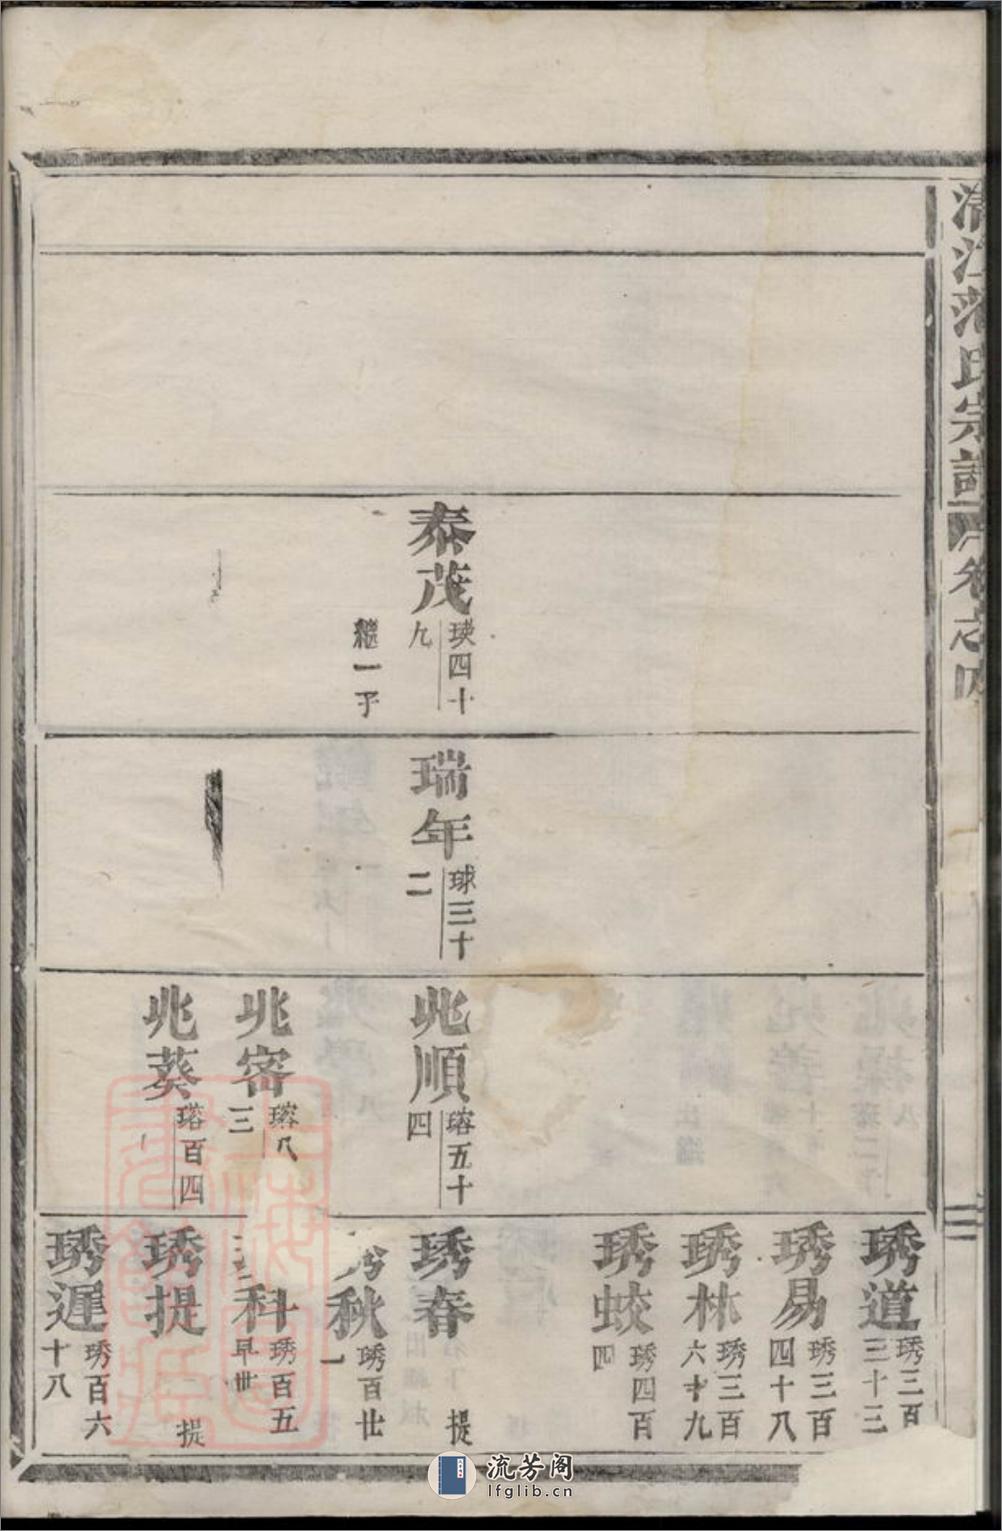 清江范氏宗譜 卷之四
泰茂
瑛四十
九
繼一子
瑞年
球三十
二
兆順
瑢五十
四
兆容
瑢八
三
兆葵
瑢百四
琇道
琇三百
三十三
琇易
琇三百
四十八
琇林
琇三百
六十九
琇蛟
琇四百
四
琇春
提
秋
琇百廿
一
科
琇百五
早世
琇提
提
琇遲
琇百六
十八
三
流芳阁
lfglib.cn